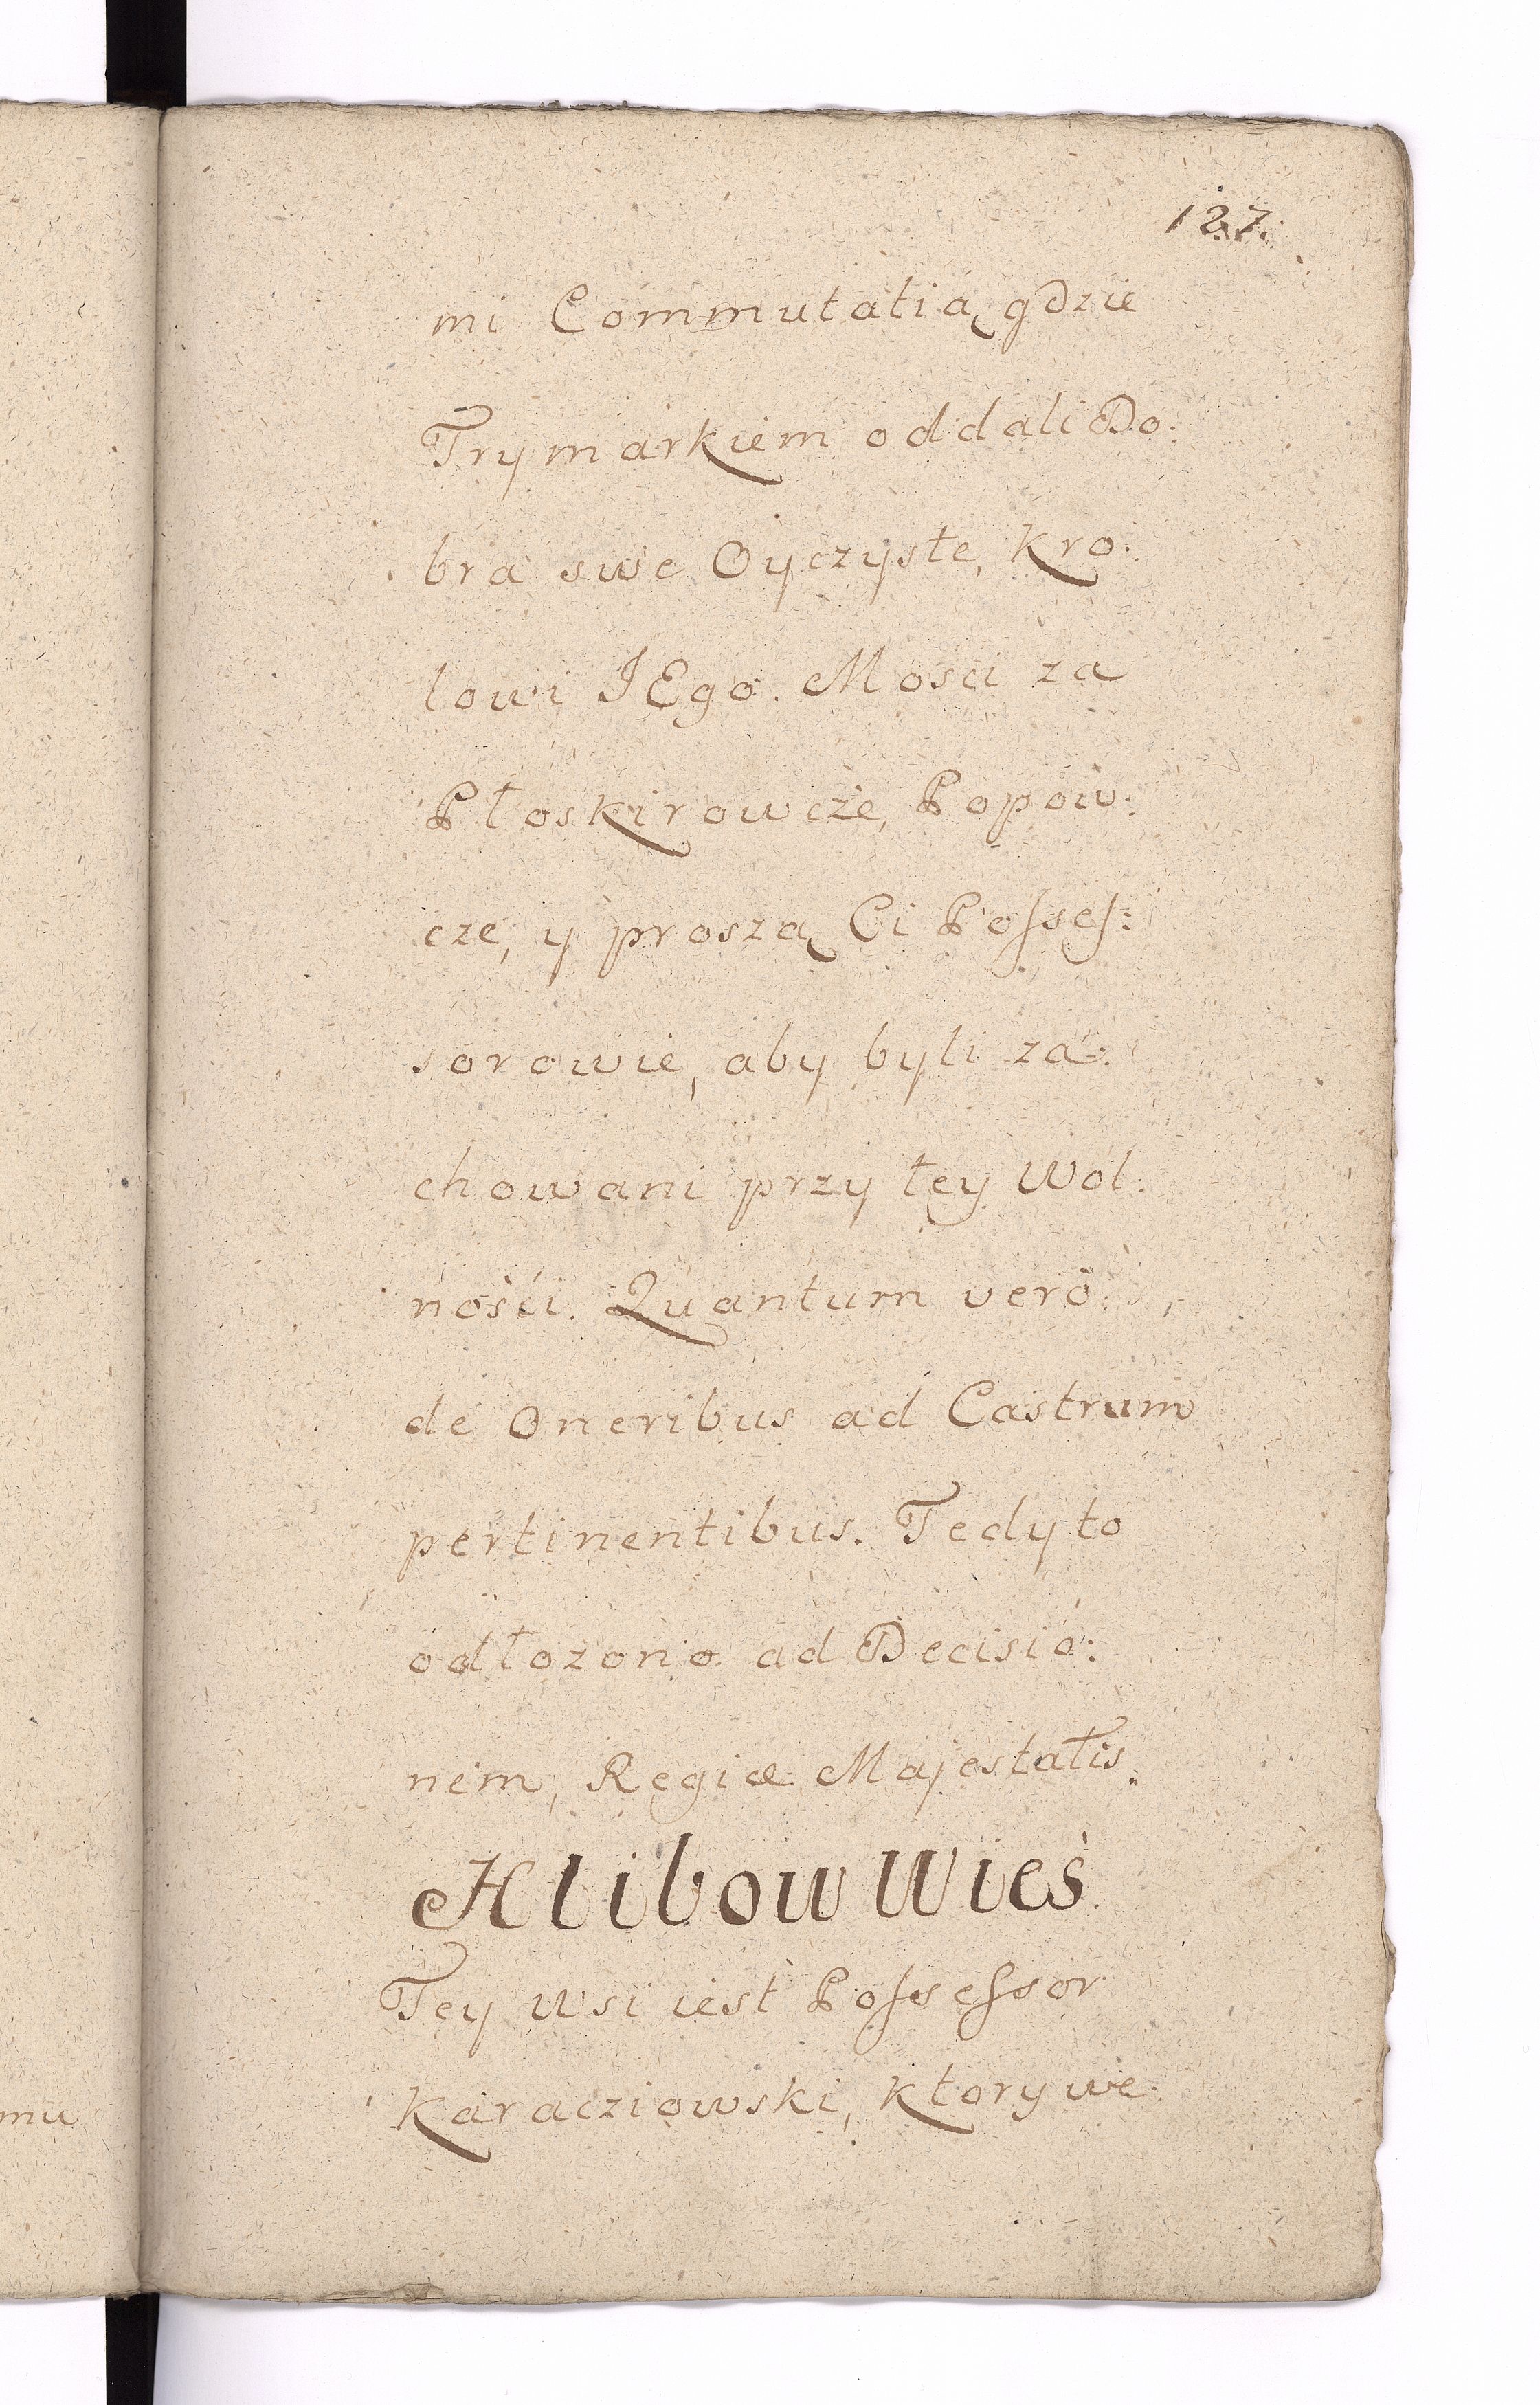 127.
mi Commutatią gdzie
Trymarkiem oddali Do:
bra swe Oyczyste, Kro:
lowi JEgo. Mosci za
Płoskirowcze, Popow:
cze, y proszą Ci Poſseſ:
sorowie, aby byli za:
chowani przy tey Wol:
ności. Quantum verò
de Oneribus ad Castrum
pertinentibus. Tedy to
odłozono ad Decisio:
nem, Regiæ Majestatis.
Hlibow Wieś
Tey wsi iest Poſseſsor
Karacziowski, ktory we
mu